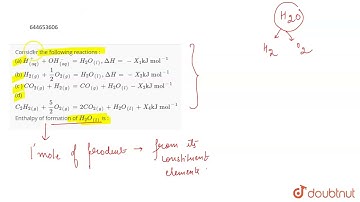 644653606
Consider the following reactions :
(a) H⁺(aq) + OH⁻(aq) = H₂O(l), ΔH = − X₁kJ mol⁻¹
(b) H₂(g) + 1/2 O₂(g) = H₂O(l), ΔH = − X₂kJ mol⁻¹
(c) CO₂(g) + H₂(g) = CO(g) + H₂O(l) − X₃kJ mol⁻¹
(d)
C₂H₂(g) + 5/2 O₂(g) = 2CO₂(g) + H₂O(l) + X₄kJ mol⁻¹
Enthalpy of formation of H₂O(l) is :
H₂O
H₂ O₂
1 mole of product → from its
constituent
elements.
doubtnut